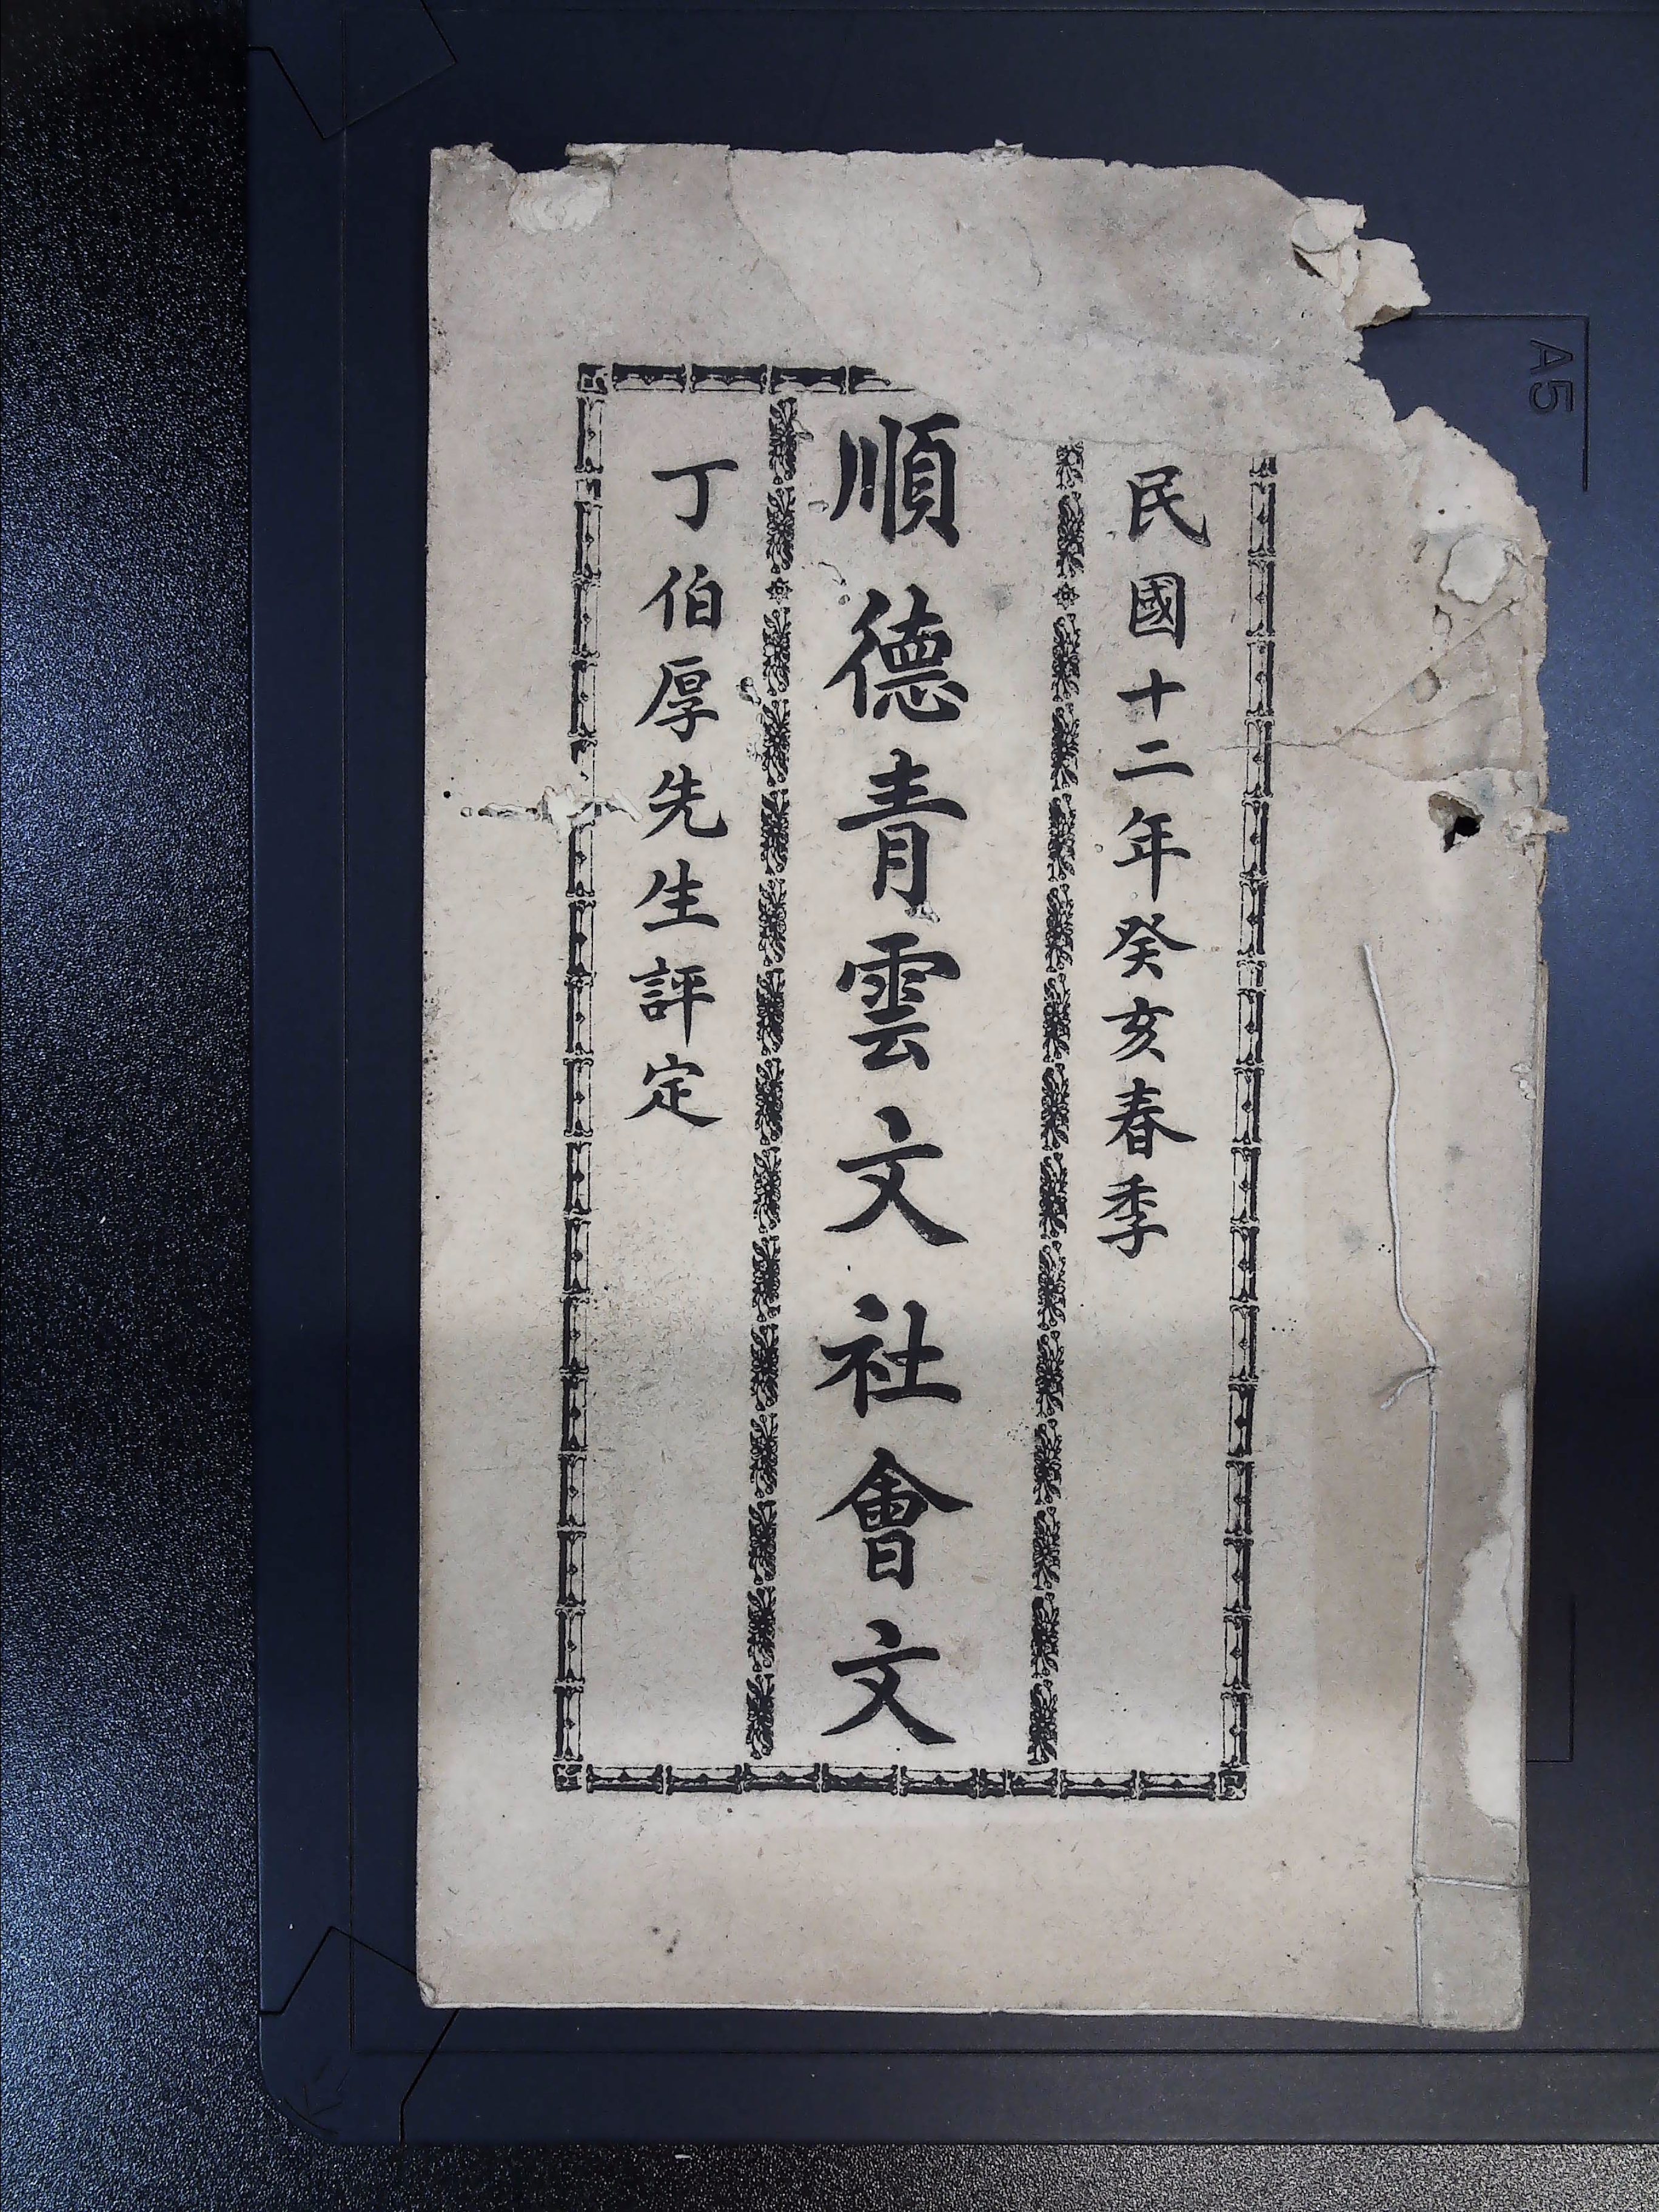 民國十二年癸亥春季
順德青雲文社會文
丁伯厚先生評定
A5